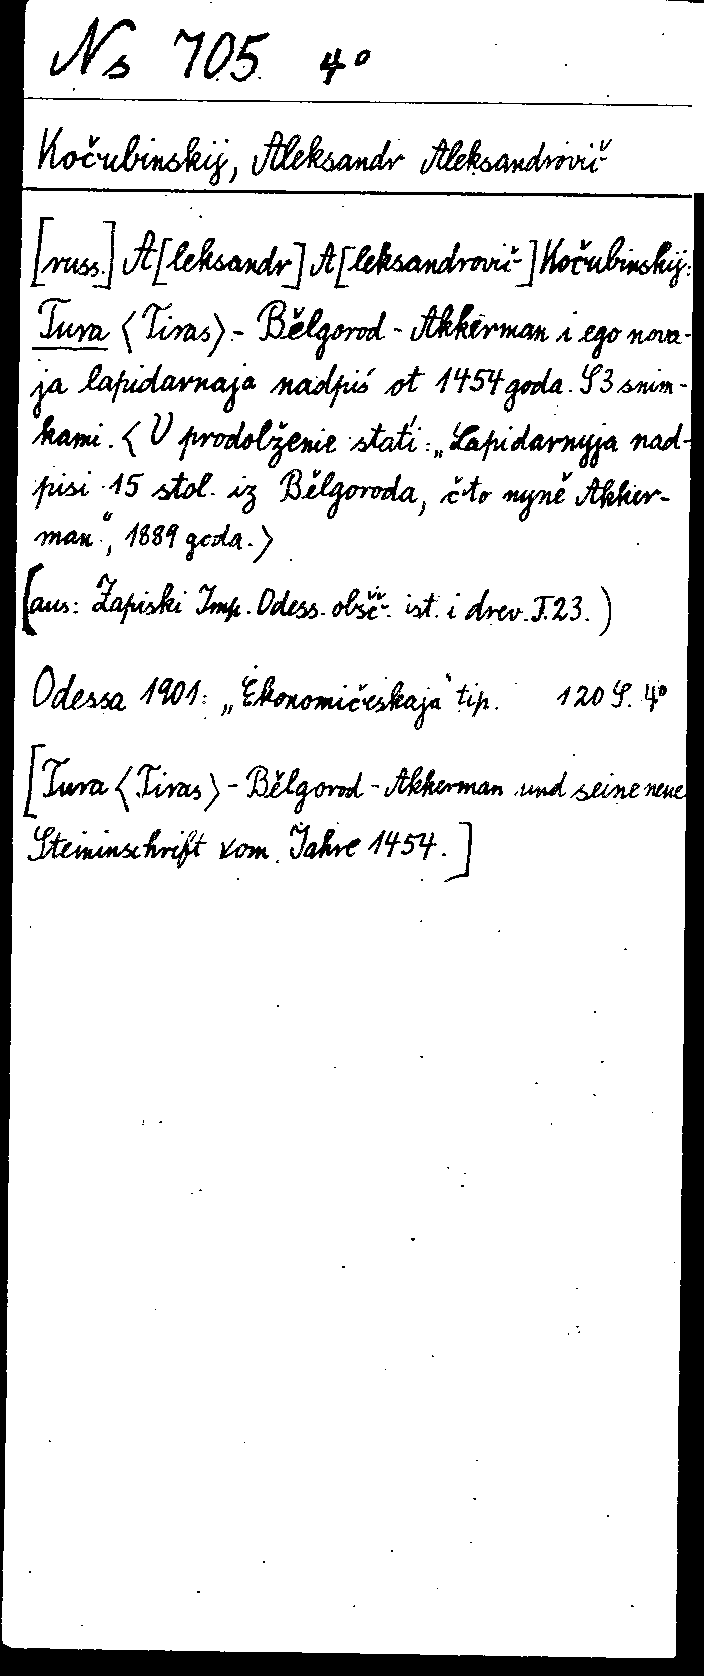 Ns 705 4°
Kočubinskij, Aleksandr Aleksandrovič
[russ.] A[leksandr] A[leksandrovič] Kočubinskij:
Tura <Tiras> - Bělgorod - Akkerman i ego nova-
ja lapidarnaja nadpiś ot 1454 goda. S 3 snim-
kami. <V prodolženie stat'i: „Lapidarnyja nad-
pisi 15 stol. iz Bělgoroda, čto nyně Akker-
man“, 1889 goda.>
(aus: Zapiski Imp. Odess. obšč. ist. i drev. T. 23.)
Odessa 1901: „Ėkonomičeskaja“ tip. 120 S. 4°
[Tura <Tiras> - Bělgorod - Akkerman und seine neue
Steininschrift vom Jahre 1454.]